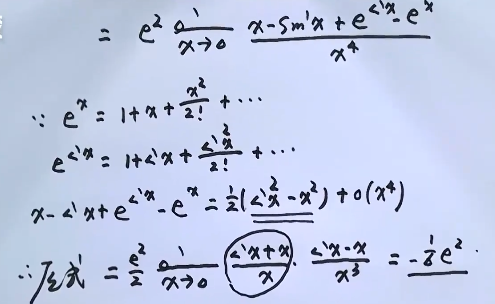 = e² lim x→0 (x - sin x + e^{sin x} - e^x) / x⁴
∵ e^x = 1 + x + x²/2! + ⋯
e^{sin x} = 1 + sin x + sin²x/2! + ⋯
x - sin x + e^{sin x} - e^x = ½(sin²x - x²) + o(x⁴)
∴ 原式 = e²/2 lim x→0 (sin x + x)/x · (sin x - x)/x³ = -⅙e².